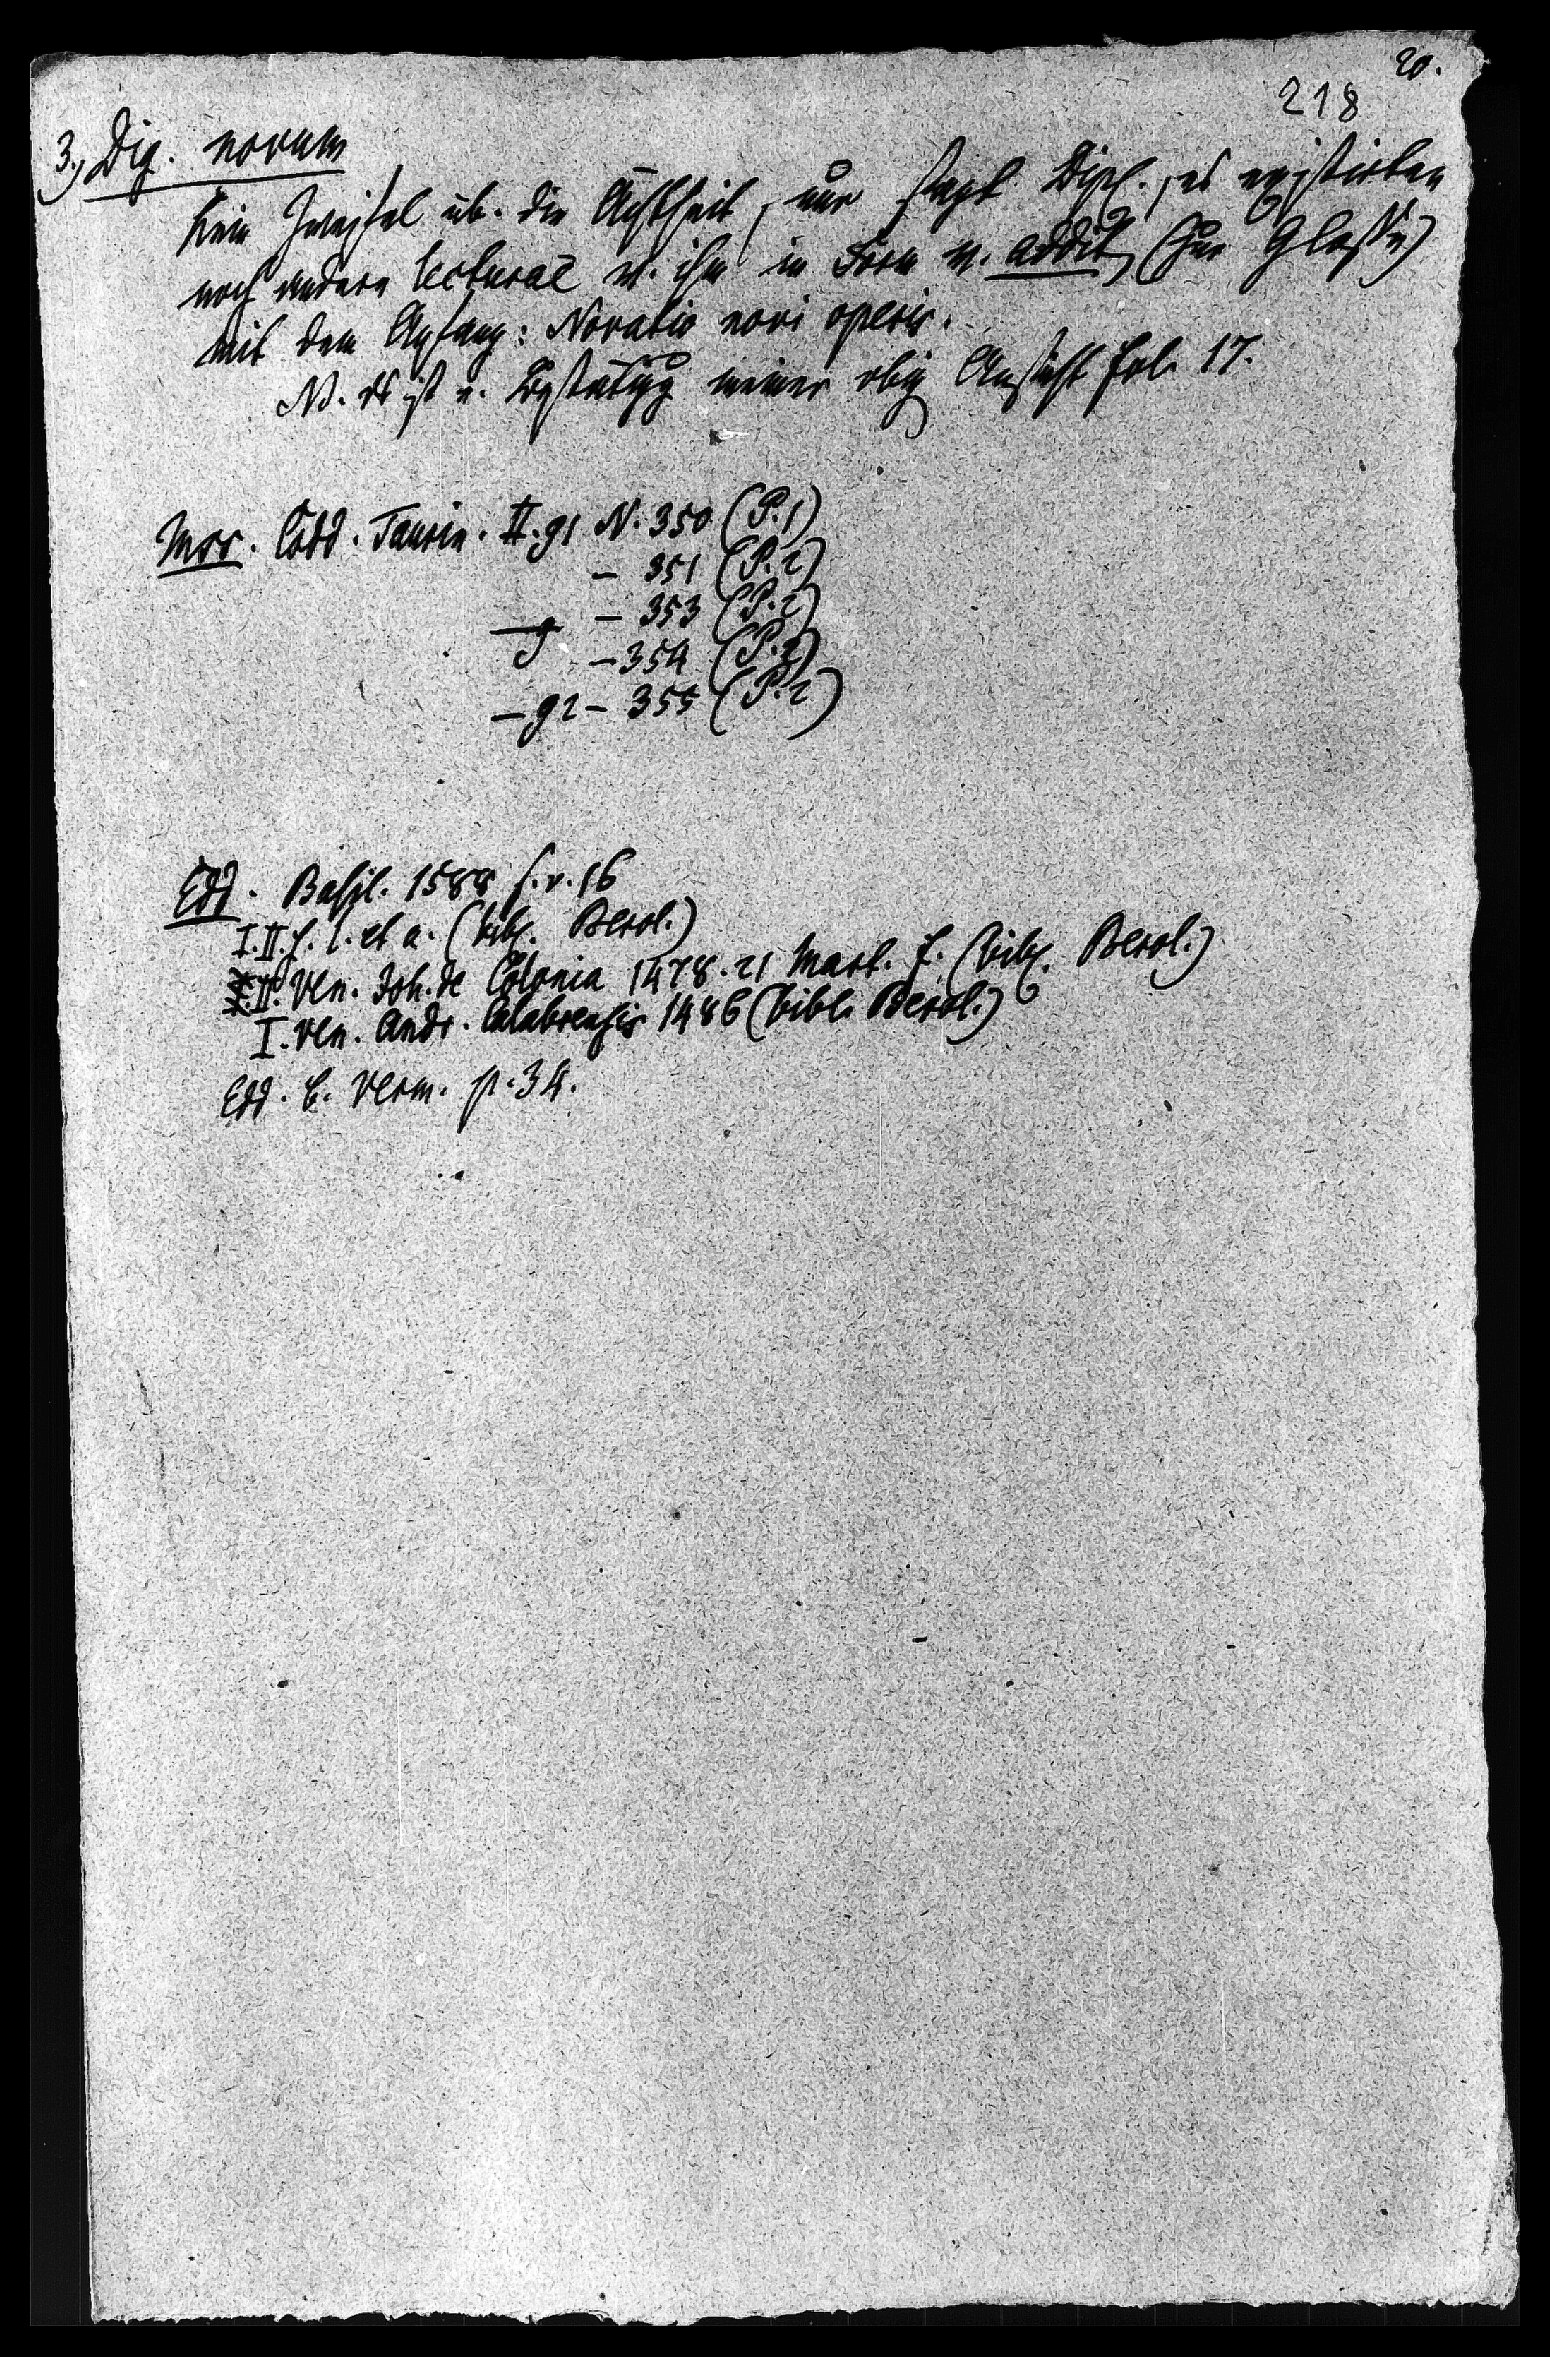 20.
218
3., Dig. novum
Kein Zweifel üb. die Ächtheit, nur sagt Dipl., es existirten
noch andere lecturae v. ihm in Form v. addit. (zur Glosse)
mit dem Anfang: Novatio novi operis.
NB. es ist e. Bestätigg meiner obig Ansicht fol. 17.
Mss. Codd. Taurin. II. g1 N. 350 (P. 1)
— 351 (P. 2)
— g — 353 (P. 2)
— 354 (P. 2)
— g2 — 355 (P. 2)
Edd. Basil. 1588 f. v. 16
I. II. s. l. et a. (bibl. Berol.)
I. II. Ven. Joh. de Colonia 1478. 21 Mart. f. (bibl. Berol.)
I. Ven. Andr. Calabrensis 1486 (bibl. Berol.)
Edd. C. Verm. p. 34.